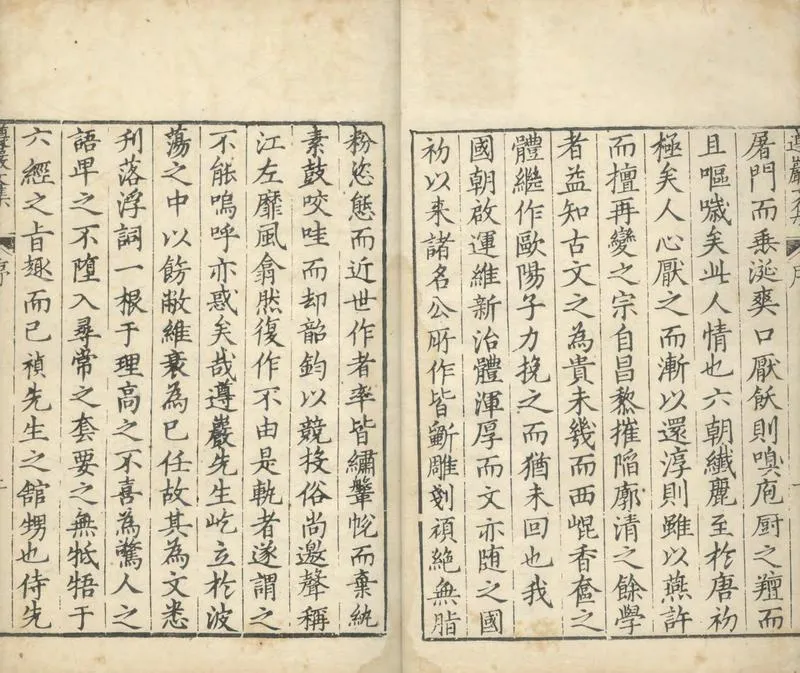 屠門而垂涎爽口厭飫則嗅庖厨之羶而
且嘔噦矣此人情也六朝纖麗至於唐初
極矣人心厭之而漸以還淳則雖以燕許
而擅再變之宗自昌黎摧陷廓清之餘學
者益知古文之為貴未幾而西崐香奩之
體繼作歐陽子力挽之而猶未回也我
國朝啟運維新治體渾厚而文亦随之國
初以来諸名公所作皆斵雕剗絕無脂
粉恣態而近世作者率皆繡鞶帨而棄紈
素鼓咬哇而却韶鈞以競投俗尚邀聲稱
江左靡風翕然復作不由是軌者遂謂之
不能嗚呼亦惑矣哉遵巖先生屹立於波
蕩之中以飭敝維衰為已任故其為文悉
刋落浮詞一根于理高之不喜為驚人之
語卑之不墮入尋常之套要之無牴牾于
六經之旨趣而已禎先生之舘甥也侍先